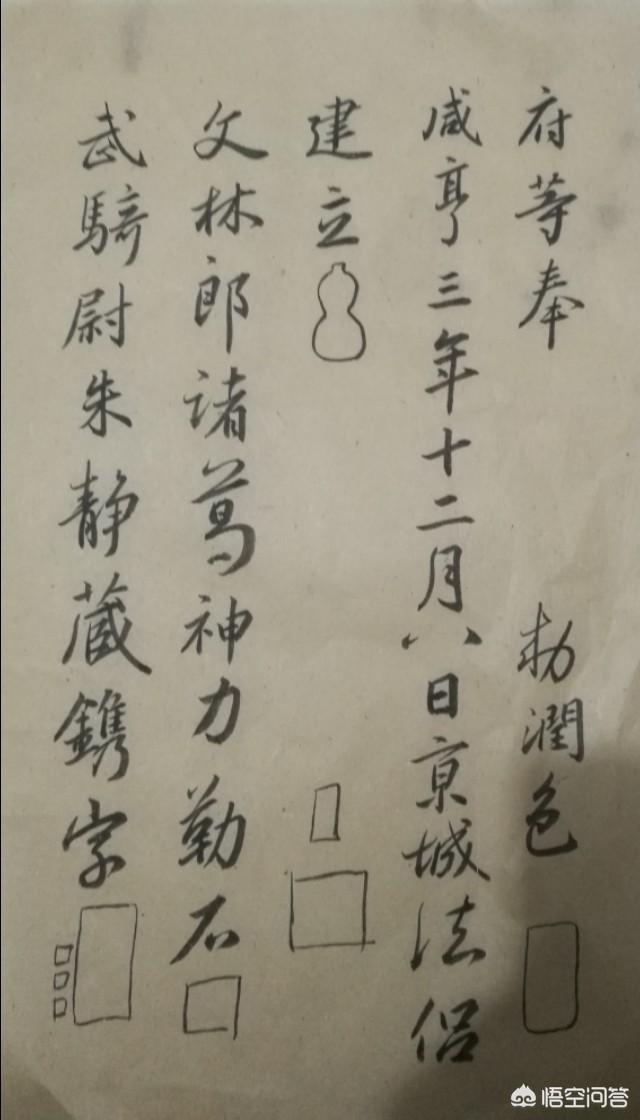 府等奉　勑潤色
咸亨三年十二月八日京城法侶
建立
文林郎諸葛神力勒石
武騎尉朱静藏鐫字
悟空问答